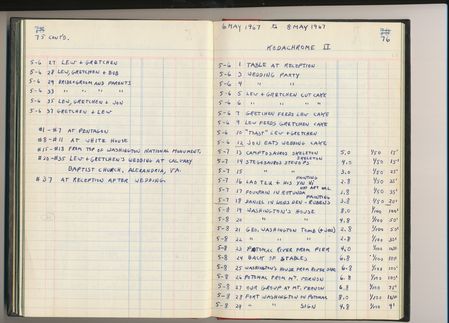 75 CONT'D.
5-6 27 LEW + GRETCHEN
5-6 28 LEW, GRETCHEN + BOB
5-6 29 BRIDEGROOM AND PARENTS
5-6 33 " " "
5-6 35 LEW, GRETCHEN + JON
5-6 37 GRETCHEN + LEW
#1-#7 AT PENTAGON
#8-#11 AT WHITE HOUSE
#15-#18 FROM TOP OF WASHINGTON NATIONAL MONUMENT.
#20-#35 LEW + GRETCHEN'S WEDDING AT CALVARY
BAPTIST CHURCH, ALEXANDRIA, VA.
#37 AT RECEPTION AFTER WEDDING.
6 MAY 1967 to 8 MAY 1967
76
KODACHROME II
5-6 1 TABLE AT RECEPTION
5-6 3 WEDDING PARTY
5-6 4 " "
5-6 5 LEW + GRETCHEN CUT CAKE
5-6 6 " " " "
5-6 7 GRETCHEN FEEDS LEW CAKE
5-6 9 LEW FEEDS GRETCHEN CAKE
5-6 10 "TOAST" LEW + GRETCHEN
5-6 12 JON EATS WEDDING CAKE
5-7 13 CAMPTOSAURUS SKELETON 5.0 1/50 15'
5-7 14 STEGOSAURUS STENOPS SKELETON 4.0 1/50 15'
5-7 15 " " 3.0 1/50
5-7 16 LAO TZE + HIS PAINTING 2.8 1/50
5-7 17 FOUNTAIN IN ROTUNDA 2.8 1/50 35'
5-7 18 DANIEL IN LIONS DEN - RUBENS PAINTING 2.8 1/50 20'
5-8 19 WASHINGTON'S HOUSE 8.0 1/100 100'
5-8 20 " " 4.8 1/100 50'
5-8 21 GEO. WASHINGTON TOMB (+ JON) 2.8 1/100
5-8 22 " " " 2.8 1/100
5-8 23 POTOMAC RIVER FROM PIER 4.0 1/100
5-8 24 BACK OF STABLES 6.8 1/100
5-8 25 WASHINGTON'S HOUSE FROM RIVER SIDE 6.8 1/100
5-8 26 POTOMAC FROM MT. VERNON 6.8 1/100
5-8 27 OUR GROUP AT MT. VERNON 6.8 1/100
5-8 28 FORT WASHINGTON IN POTOMAC 8.0 1/100
5-8 29 " " SIGN 4.8 1/100 9'